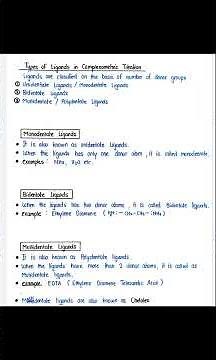 Types of Ligands in Complexometric Titration
Ligands are classified on the basis of number of donor groups
① Unidentate Ligands / Monodentate Ligands
② Bidentate Ligands
③ Multidentate / Polydentate Ligands
Monodentate Ligands
• It is also known as unidentate Ligands.
• When the ligands has only one donor atom, it is called monodentate.
• Examples : NH₃, H₂O etc.
Bidentate Ligands
• When the ligands has two donor atoms, it is called Bidentate ligands.
• Example : Ethylene Diamine
Multidentate Ligands
• It is also known as Polydentate ligands.
• When the ligands have more than 2 donor atoms, it is called as
Multidentate ligands.
• Example EDTA ( Ethylene Diamine Tetraacetic Acid )
• Multidentate ligands are also known as Chelates